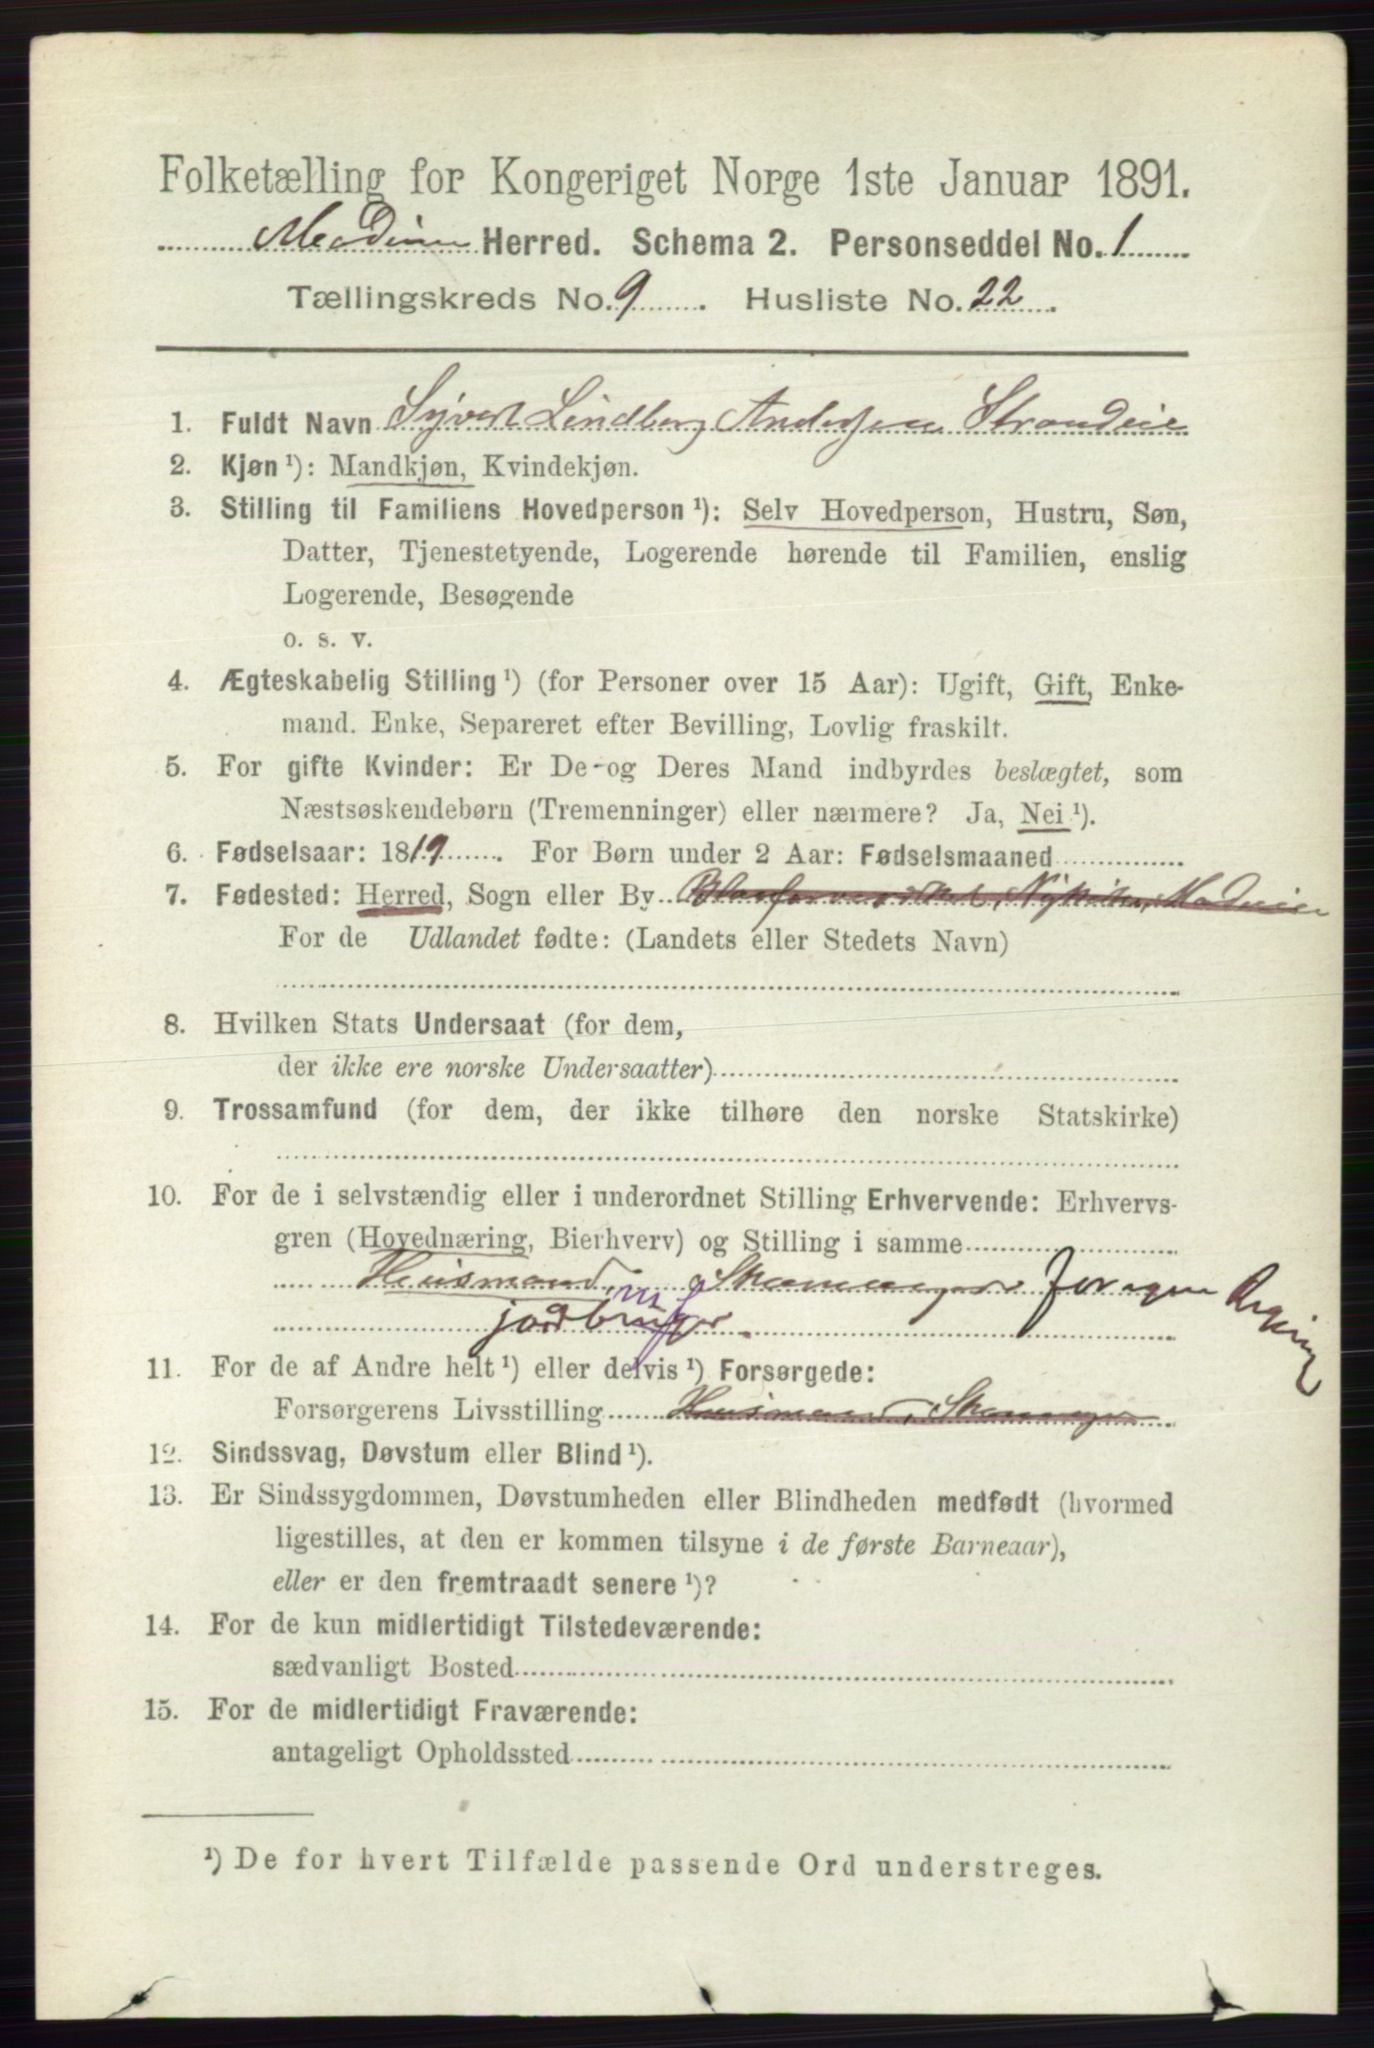 Folketælling for Kongeriget Norge 1ste Januar 1891.
Modum Herred. Schema 2. Personseddel No. 1
Tællingskreds No. 9. Husliste No. 22.
1. Fuldt Navn Syvert Lindberg Andersen Strandeie
2. Kjøn ¹): Mandkjøn, Kvindekjøn.
3. Stilling til Familiens Hovedperson ¹): Selv Hovedperson, Hustru, Søn,
Datter, Tjenestetyende, Logerende hørende til Familien, enslig
Logerende, Besøgende
o. s. v.
4. Ægteskabelig Stilling ¹) (for Personer over 15 Aar): Ugift, Gift, Enke-
mand. Enke, Separeret efter Bevilling, Lovlig fraskilt.
5. For gifte Kvinder: Er De og Deres Mand indbyrdes beslægtet, som
Næstsøskendebørn (Tremenninger) eller nærmere? Ja, Nei ¹).
6. Fødselsaar: 1819. For Børn under 2 Aar: Fødselsmaaned
7. Fødested: Herred, Sogn eller By Blaafarveværket, Nykirke, Modum
For de Udlandet fødte: (Landets eller Stedets Navn)
8. Hvilken Stats Undersaat (for dem,
der ikke ere norske Undersaatter)
9. Trossamfund (for dem, der ikke tilhøre den norske Statskirke)
10. For de i selvstændig eller i underordnet Stilling Erhvervende: Erhvervs-
gren (Hovednæring, Bierhverv) og Stilling i samme
Huusmand, Skomager for egen Regning
jordbruger
11. For de af Andre helt ¹) eller delvis ¹) Forsørgede:
Forsørgerens Livsstilling Huusmand, Skomager
12. Sindssvag, Døvstum eller Blind ¹).
13. Er Sindssygdommen, Døvstumheden eller Blindheden medfødt (hvormed
ligestilles, at den er kommen tilsyne i de første Barneaar),
eller er den fremtraadt senere ¹)?
14. For de kun midlertidigt Tilstedeværende:
sædvanligt Bosted
15. For de midlertidigt Fraværende:
antageligt Opholdssted
¹) De for hvert Tilfælde passende Ord understreges.